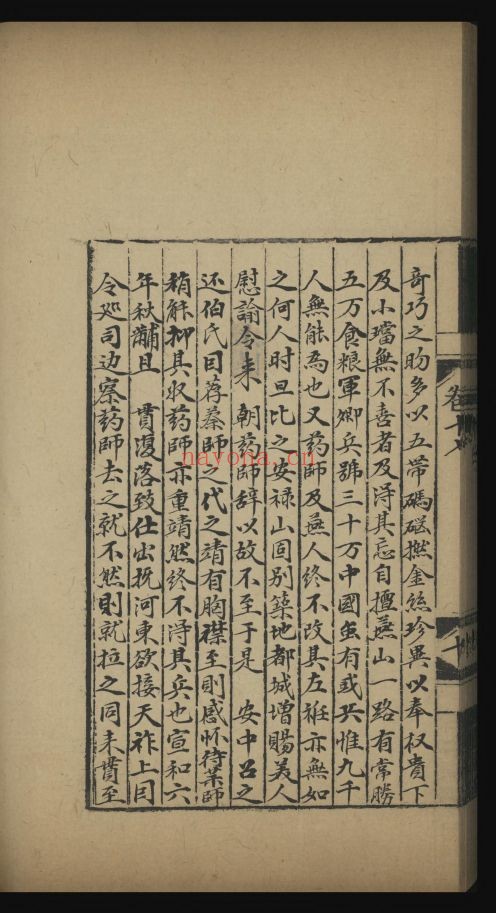 奇巧之物多以五帶碼磁撚金絲珍異以奉权貴下
及小璫無不善者及淂其忘自擅燕山一路有常勝
五万食粮軍鄉兵號三十万中國虽有戍兵惟九千
人無能為也又药師及燕人终不改其左袵亦無如
之何人时旦比之安禄山囙别築地都城增賜美人
慰諭令来 朝药師辞以故不至于是 安中召之
还伯氏目荐蔡師之代之靖有胸襟至則感怀待葯師
稍解抑其収药師亦重靖然终不淂其兵也宣和六
年秋黼且 貫復落致仕出抚河東欲接天祚上囙
令処司边察药師去之就不然則就拉之同来貫至
卷十八
hayona.cn